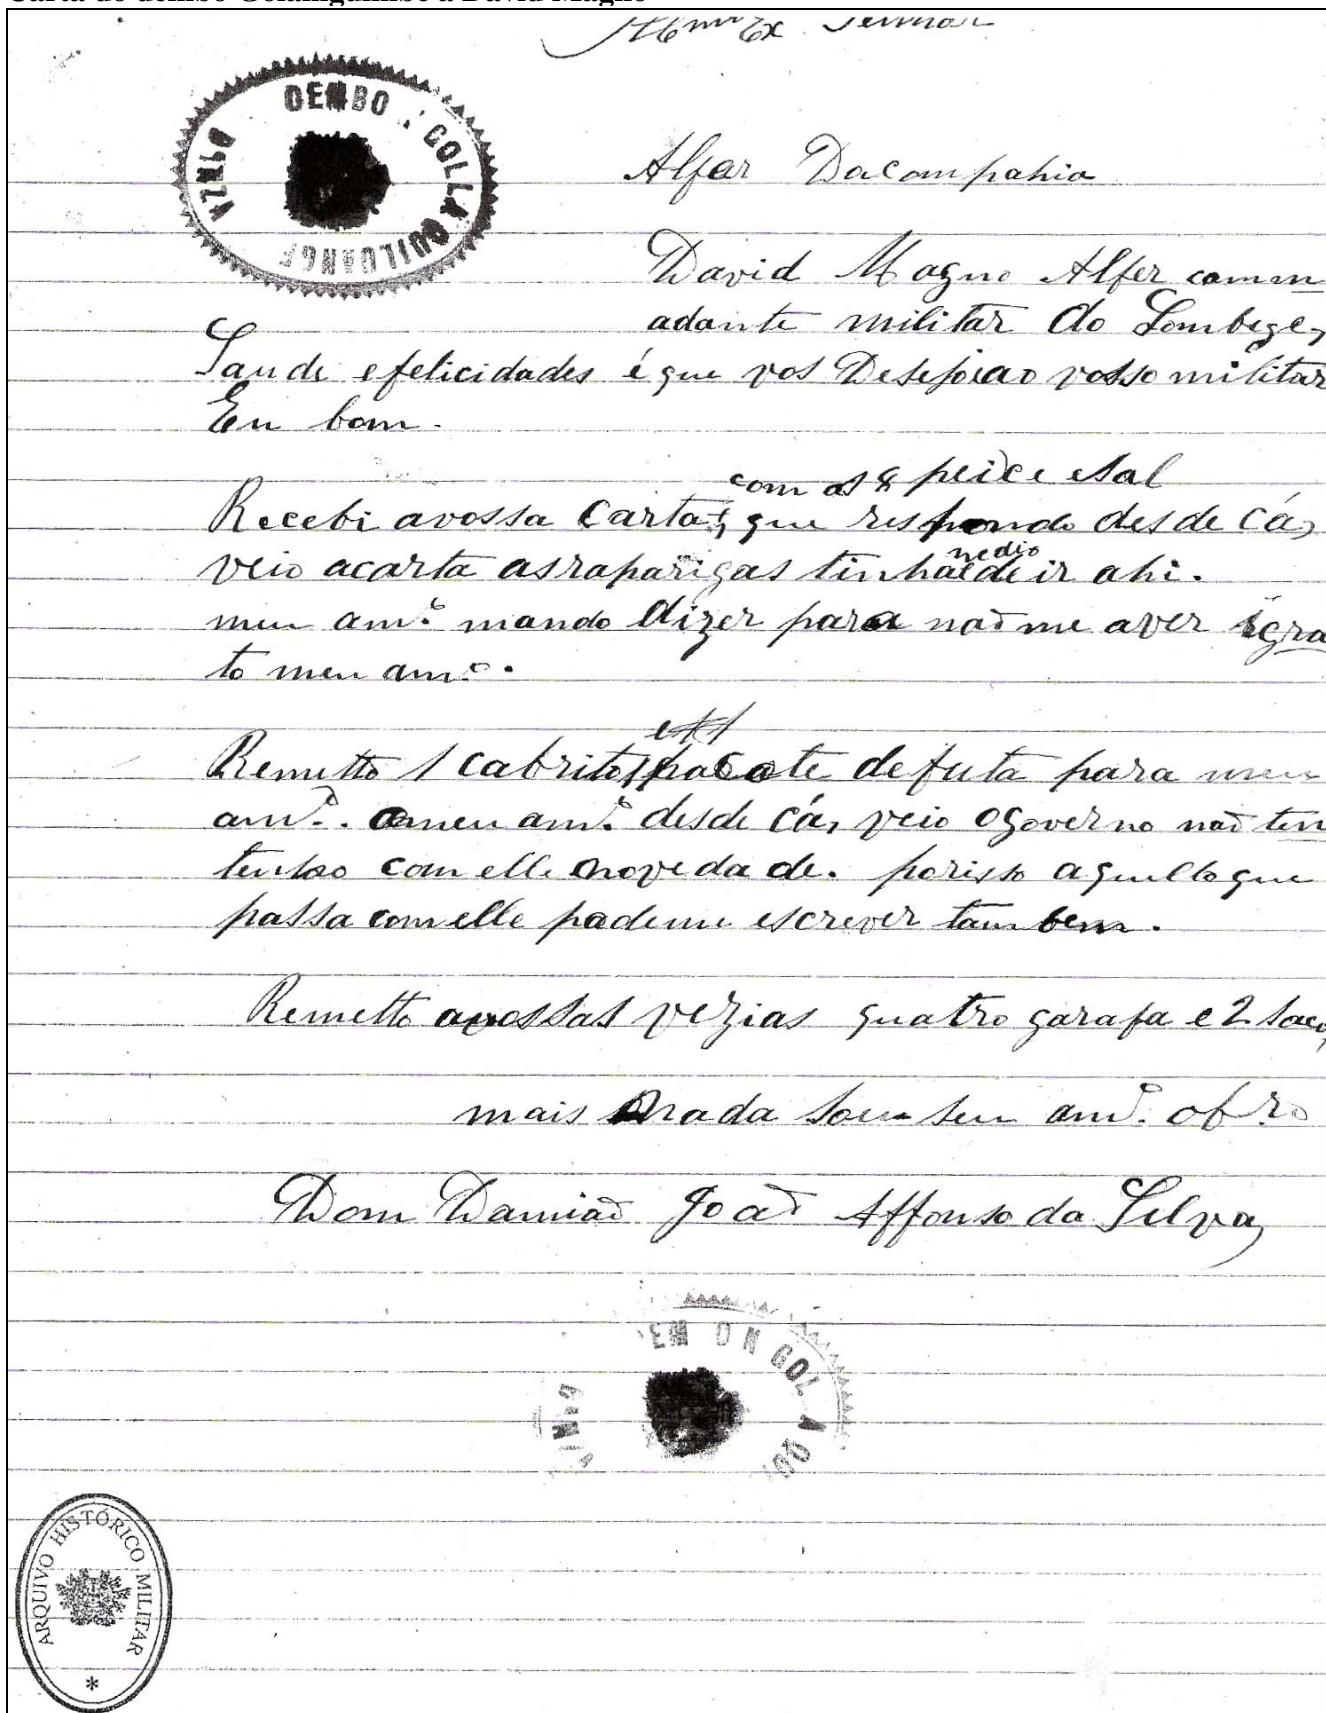 Carta do dembo Golamguimbe a David Magno
Ex Senhor
DEMBO GOLLA QUILUANGE
Alfer Dacompahia
David Magno Alfer comm
adante militar do Lombege,
Saude efelicidades é que vos vosso militar
Eu bom.
com as 8 peixe esal
Recebi avossa Carta, que respondo desde Cá,
veio acarta asraparigas tinha de ir ahi.
meu am.º mando dizer para não me aver igra
to meu am.º.
Remetto 1 Cabrito pacote defuta para meu
am.º. Omeu am.º desde Cá, veio oGoverno não ten
tenho com elle novedade. porisso aquelloque
passa comelle pademe escrever tambem.
Remetto avossas vezias quatro garafa e 2 saco,
mais nada sou seu am.º ob.ro
Dom Damião João Affonso da Silva,
EM ON GOL A QU
ARQUIVO HISTÓRICO MILITAR
*